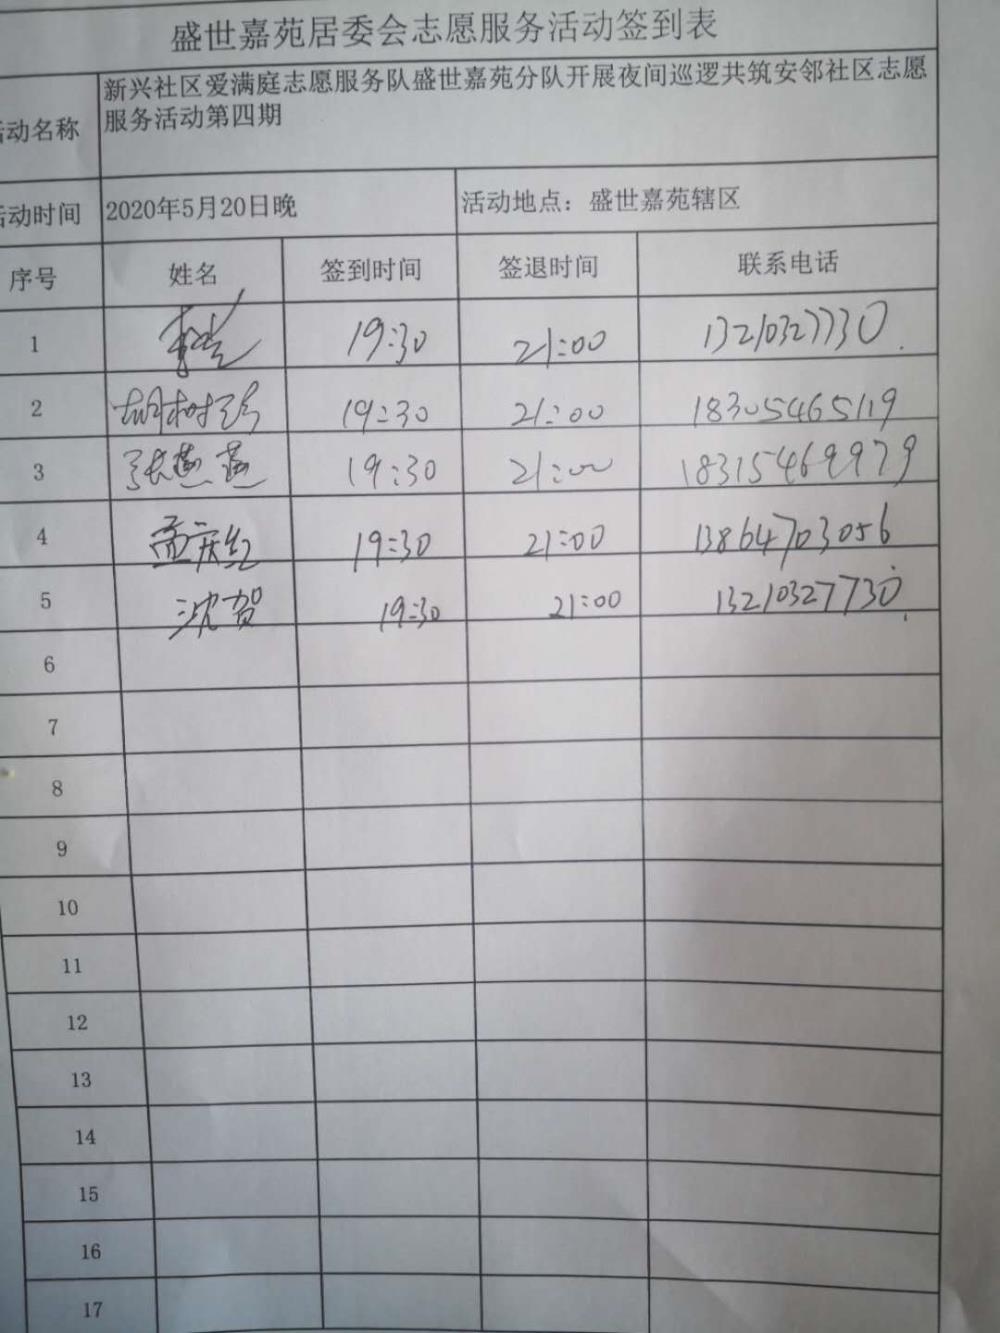 盛世嘉苑居委会志愿服务活动签到表
活动名称 新兴社区爱满庭志愿服务队盛世嘉苑分队开展夜间巡逻共筑安邻社区志愿
服务活动第四期
活动时间 2020年5月20日晚 活动地点：盛世嘉苑辖区
序号 姓名 签到时间 签退时间 联系电话
1 19:30 21:00 13210327730
2 胡树珍 19:30 21:00 18305465119
3 张燕燕 19:30 21:00 18315469979
4 孟庆红 19:30 21:00 13864703056
5 沈贺 19:30 21:00 13210327730
6
7
8
9
10
11
12
13
14
15
16
17